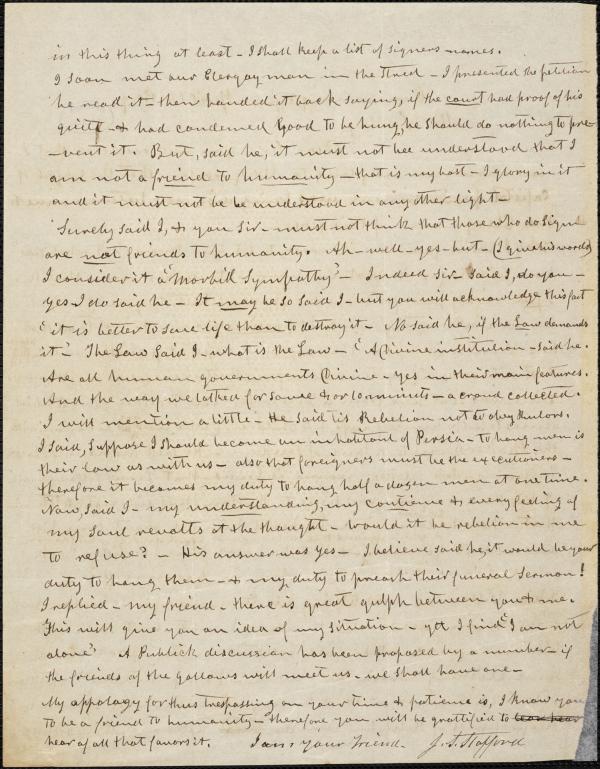 in this thing at least - I shall keep a list of signers names.
I soon met our Clergayman in the street - I presented the petition
he read it - then handed it back saying, if the court had proof of his
guilt - & had condemned Good to be hung, he should do nothing to pre-
-vent it. But, said he, it must not bee understood that I
am not a friend to humanity - that is my host - I glory in it
and it must not be be understood in any other light -
Surely said I, & you sir - must not think that those who do sign
are not friends to humanity. Ah - well - yes - but - (I give his words)
I consider it a "Morbid Sympathy" - Indeed sir - said I, do you -
yes I do said he - It may be so said I - but you will acknowledge this fact
"it is better to save life than to destroy it - No said he, if the Law demands
it - The Law said I - what is the Law - "A Divine institution - said he.
Are all human governments Divine - yes in their main features.
And the way we talked for 8 or 10 minuts - a croud collected.
I will mention a little - He said tis Rebelion not to obey the laws.
I said, suppose I should become an inhabitant of Persia - to hang men is
their law as with us - also that foreigners must be the executioners -
therefore it becomes my duty to hang half a dozen men at one time.
Now, said I - my understanding, my contience & every feeling of
my Soul revolts at the thought - would it be rebelion in me
to refuse? - His answer was yes - I believe said he, it would be your
duty to hang them - & my duty to preach their funeral Sermon!
I replied - my friend - there is great gulph between you & me.
This will give you an idea of my situation - yet I find "I am not
alone" A Publick discussion has been proposed by a number - if
the friends of the gallows will meet us - we shall have one -
My appology for thus trespassing on your time & patience is, I know you
to be a friend to humanity - therefore you will be grattified to
hear of all that favors it. I am your friend - J. S. Stafford